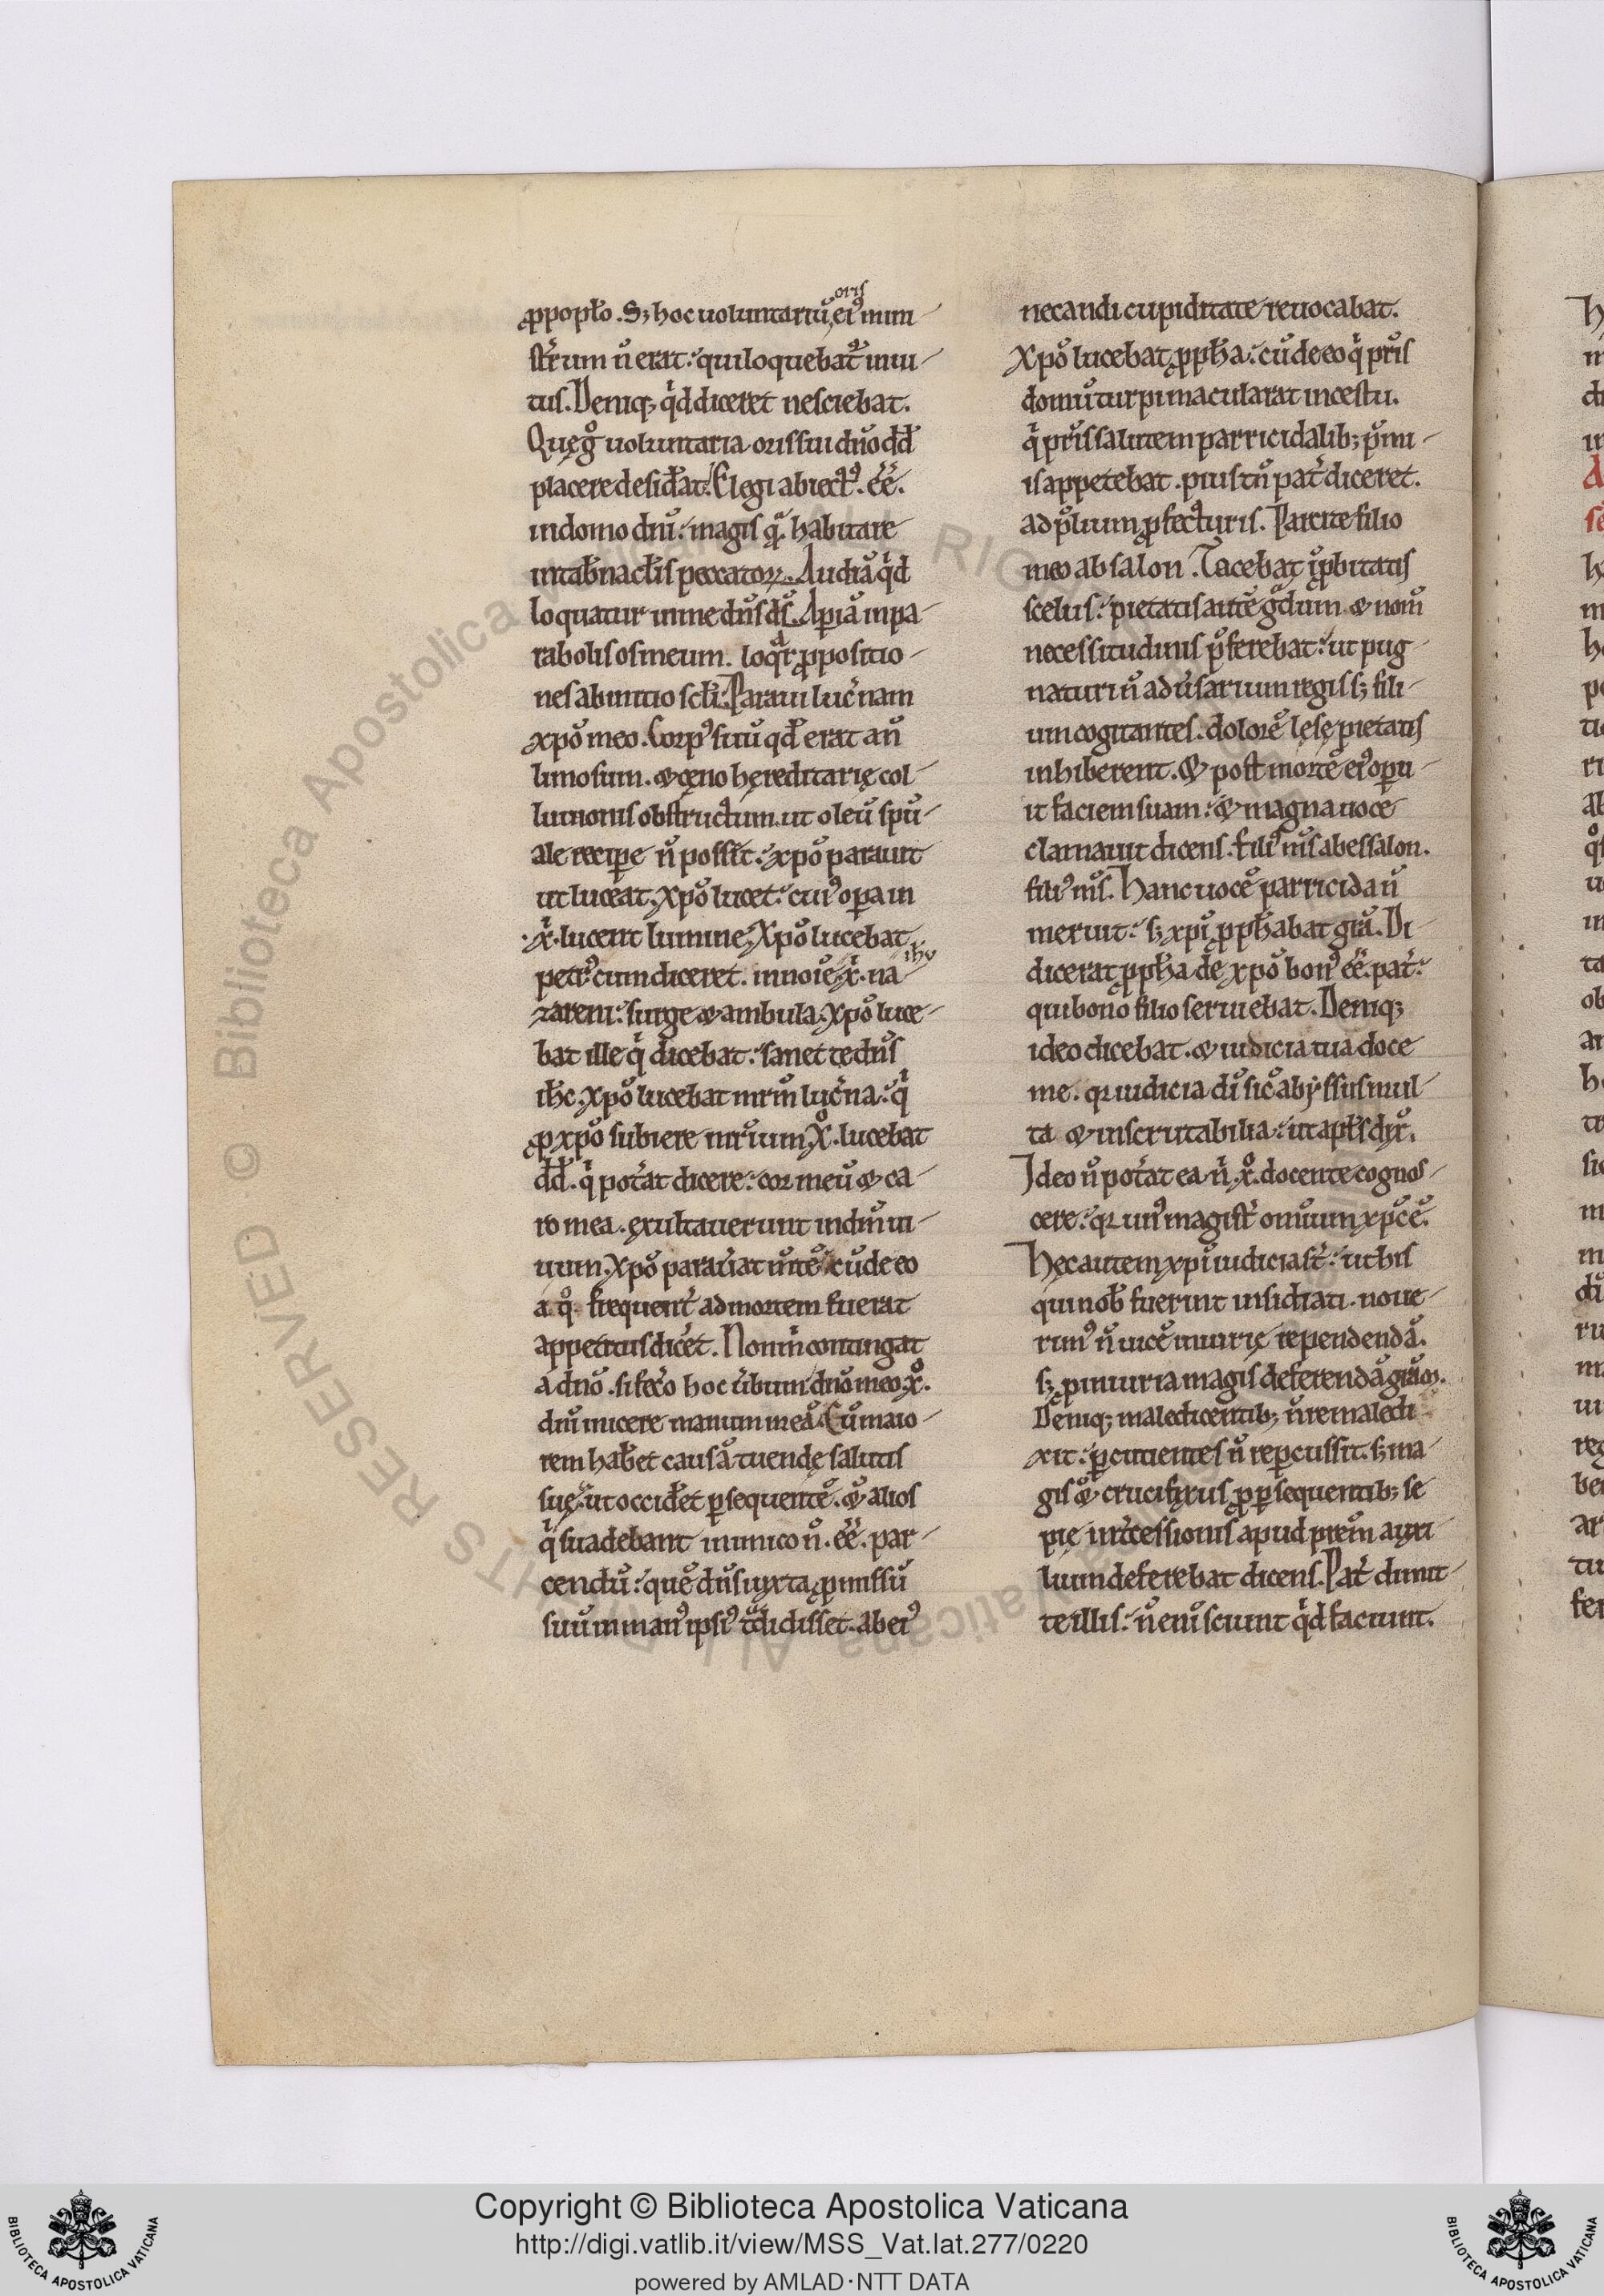 ꝓ popł̃o. Sꝫ hoc uoluntariũ, oris ei᷒ mini-
strͥum ñ erat: qui loquebat᷑ inui-
tus. Deniqꝫ qͥd diceret nesciebat.
Quę gͦ uoluntaria oris sui dño dd̃
placere desiđat: Elegi abiect᷒. eẽ.
in domo dñi: magis qͣ̃. habitare
in tab̃nacłis peccatoꝝ. Audiã qͥd
loquatur in me dñs dš. Aꝑiã in pa-
rabolis os meum. loqͣr ꝓpositio-
nes ab initio scłi. Paraui luc̃nam
xpõ meo. Corp᷒ suũ qđ erat añ
limosum. & cęno hęreditarię col-
luuionis obstructum. ut oleũ spũ-
ale recipe ñ possit: xpõ parauit
ut luceat. Xpõ lucet: cui᷒ oꝑa in
.xͥ. lucent lumine. Xpõ lucebat
petr᷒ cum diceret. in noĩe .xͥ. ihv na-
zareni: surge & ambula. Xpõ luce-
bat ille qͥ dicebat: sanet te dñs
iħc. xpõ lucebat mr̃m luc̃na: qͥ
ꝓ xpõ subiere mr̃ium. Xͦ. lucebat
dd̃. qͥ pot̃at dicere: cor meũ & ca-
ro mea. exultauerunt in dm̃ ui-
uum. Xpõ parau̾at m̃tẽ: cũ de eo
a qͦ. frequent̃ ad mortem fuerat
appetitus dic̃et. Non m̃ contingat
a dnõ. si fec̃o hoc u̾bum dño meo .xͦ.
dñi inicere manum meã. Cũ maio-
rem hab̃et causã tuendę salutis
suę: ut occiđet ꝑsequentẽ. & alios
qͥ suadebant inimico ñ. eẽ. par-
cendũ: quẽ dñs iuxta ꝓmissũ
suũ in man᷒ ipsi᷒ tͣdidisset. ab ei᷒
necandi cupiditate reuocabat.
Xpõ lucebat ꝓpħa: cũ de eo qͥ pr̃is
domũ turpi macularat incestu.
qͥ pr̃is salutem parricidalibꝫ p̃mi-
is appetebat. pius tñ pat̃ diceret.
ad p̃lium ꝓfecturis. Parcite filio
meo absalon. Tacebat īꝓbitatis
scelus: pietatis autẽ gͣdum & nom̃
necessitudinis p̃ferebat: ut pug-
naturi ñ adu̾sarium regis sꝫ fili-
um cogitantes. dolorẽ lęsę pietatis
inhiberent. & post mortẽ ei᷒ oꝑu-
it faciem suam: & magna uoce
clamauit dicens. fili᷒ m̃s abessalon.
fili᷒ m̃s. Hanc uocẽ parricida ñ
meruit: sꝫ xpi ꝓpħabat grã. Di-
dicerat ꝓpħa de xpõ bon᷒ eẽ. pat̃:
qui bono filio seruiebat. Deniqꝫ
ideo dicebat. & iudicia tua doce
me. qꝛ iudicia dĩ sic̃ abyssus mul-
ta & inscrutabilia: ut apł̃s dix̃.
Ideo ñ pot̃at ea. nͥ. xͦ. docente cognos-
cere: qꝛ un᷒ magist̃ omĩum xp̃c ẽ.
Hęc autem xpi iudicia st̃: ut his
qui nob̃ fuerint insidiati. noue-
rim᷒ ñ uicẽ iniurię rependendã.
sꝫ ꝓ iniuria magis deferendã grãm.
Deniqꝫ maledicentibꝫ ñ remaledi-
xit: ꝑcutientes ñ reꝑcussit. sꝫ ma-
gis & crucifixus ꝓ ꝑsequentibꝫ se
pię int̃cessionis apud prẽm auxi-
lium deferebat dicens. Pat̃ dimit-
te illis: ñ enĩ sciunt qͥd faciunt.
Copyright © Biblioteca Apostolica Vaticana
http://digi.vatlib.it/view/MSS_Vat.lat.277/0220
powered by AMLAD·NTT DATA